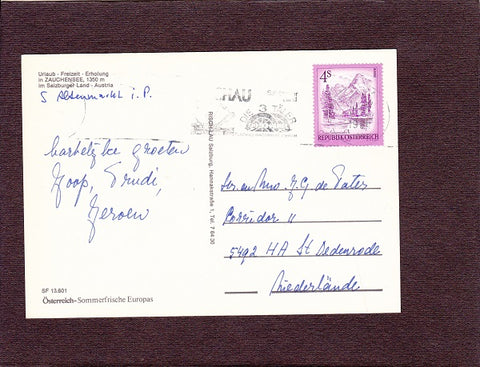 Urlaub - Freizeit - Erholung
in ZAUCHENSEE, 1350 m
im Salzburger Land - Austria
5 Altenmarkt i. P.
hartelijke groeten
Joop, Trudi,
Jeroen
SF 13.601
Österreich-Sommerfrische Europas
RISCH-LAU Salzburg, Tel. 7 64 20
3
4S
REPUBLIK ÖSTERREICH
J. G. de Pater
Corridor 11
5492 HA St Oedenrode
Niederlände